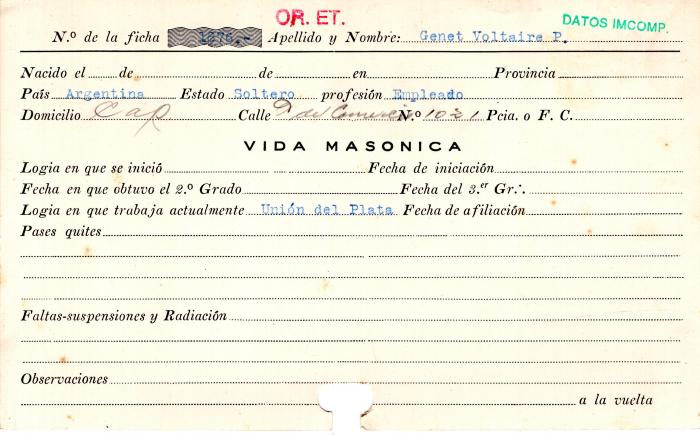 OR. ET.
DATOS IMCOMP.
N.º de la ficha 1276,- Apellido y Nombre: Genet Voltaire P.
Nacido el de de en Provincia
País Argentina Estado Soltero profesión Empleado
Domicilio Cap Calle de Comercio N.º 1021 Pcia. o F. C.
VIDA MASONICA
Logia en que se inició Fecha de iniciación
Fecha en que obtuvo el 2.º Grado Fecha del 3.er Gr∴
Logia en que trabaja actualmente Unión del Plata Fecha de afiliación
Pases quites
Faltas-suspensiones y Radiación
Observaciones
a la vuelta